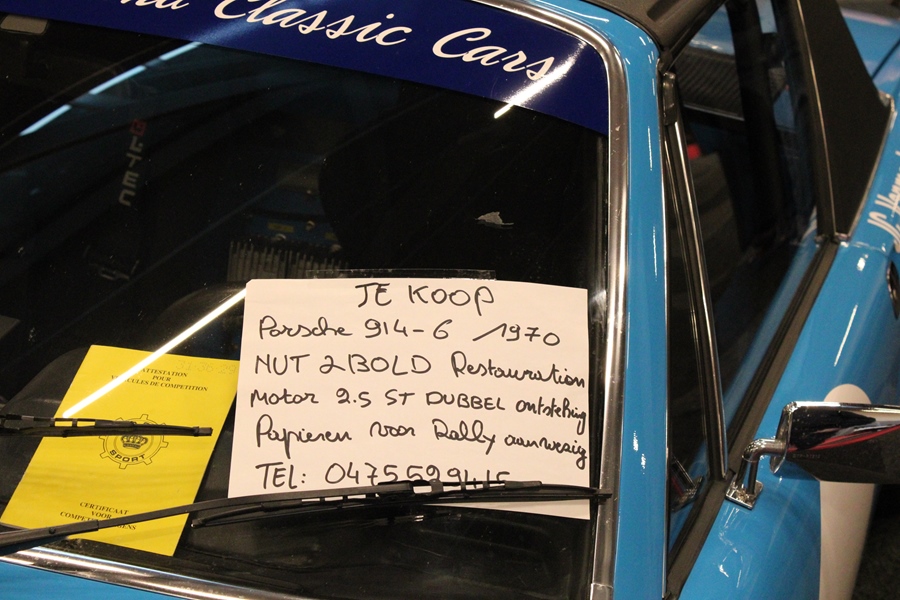 Classic Cars
TE KOOP
Porsche 914-6 1970
NUT & BOLD Restauration
Motor 2.5 ST DUBBEL ontsteking
Papieren voor Rally aanwezig
TEL: 0475599415
ATTESTATION
POUR
VEHICULES DE COMPETITION
SPORT
CERTIFICAAT
VOOR